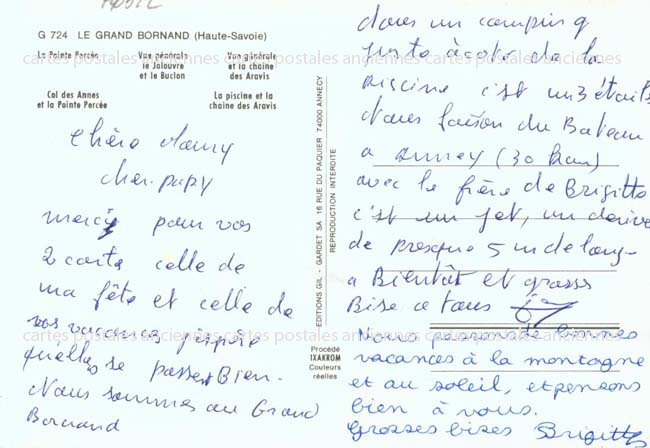 G 724 LE GRAND BORNAND (Haute-Savoie)
La Pointe Percée
Vue générale
le Jalouvre
et le Buclon
Vue générale
et la chaîne
des Aravis
Col des Annes
et la Pointe Percée
La piscine et la
chaîne des Aravis
cartes postales anciennes cartes postales anciennes cartes postales anciennes
chère Mamy
cher papy
merci pour vos
2 carte celle de
ma fête et celle de
vos vacances j'espère
quelles se passent Bien.
Nous sommes au Grand
Bornand
EDITIONS GIL - GARDET SA. 16 RUE DU PAQUIER 74000 ANNECY
REPRODUCTION INTERDITE
Procédé
IXAKROM
Couleurs
réelles
dans un camping
juste à coté de la
piscine c'est un 3 étoils
Nous faison du Bateau
a annecy (30 km)
avec le frère de Brigitte
c'est un jet, un dérive
de presque 5 m de long
a Bientôt et grosse
Bise a tous
Nous passons de bonnes
vacances à la montagne
et au soleil, et pensons
bien à vous.
Grosses bises Brigitte
cartes postales anciennes cartes postales anciennes cartes postales anciennes